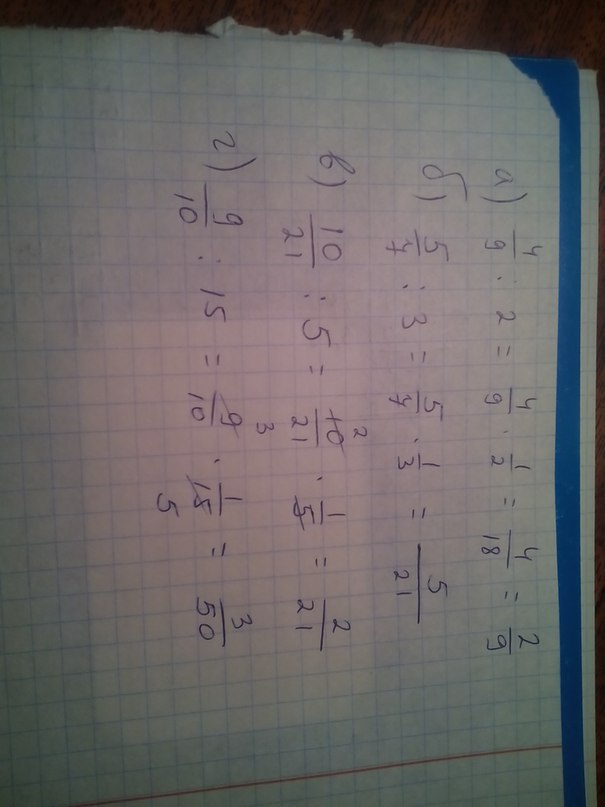 а) 4/9 : 2 = 4/9 · 1/2 = 4/18 = 2/9
б) 5/7 : 3 = 5/7 · 1/3 = 5/21
в) 10/21 : 5 = 10/21 · 1/5 = 2/21
2
г) 9/10 : 15 = 9/10 · 1/15 = 3/50
3
5